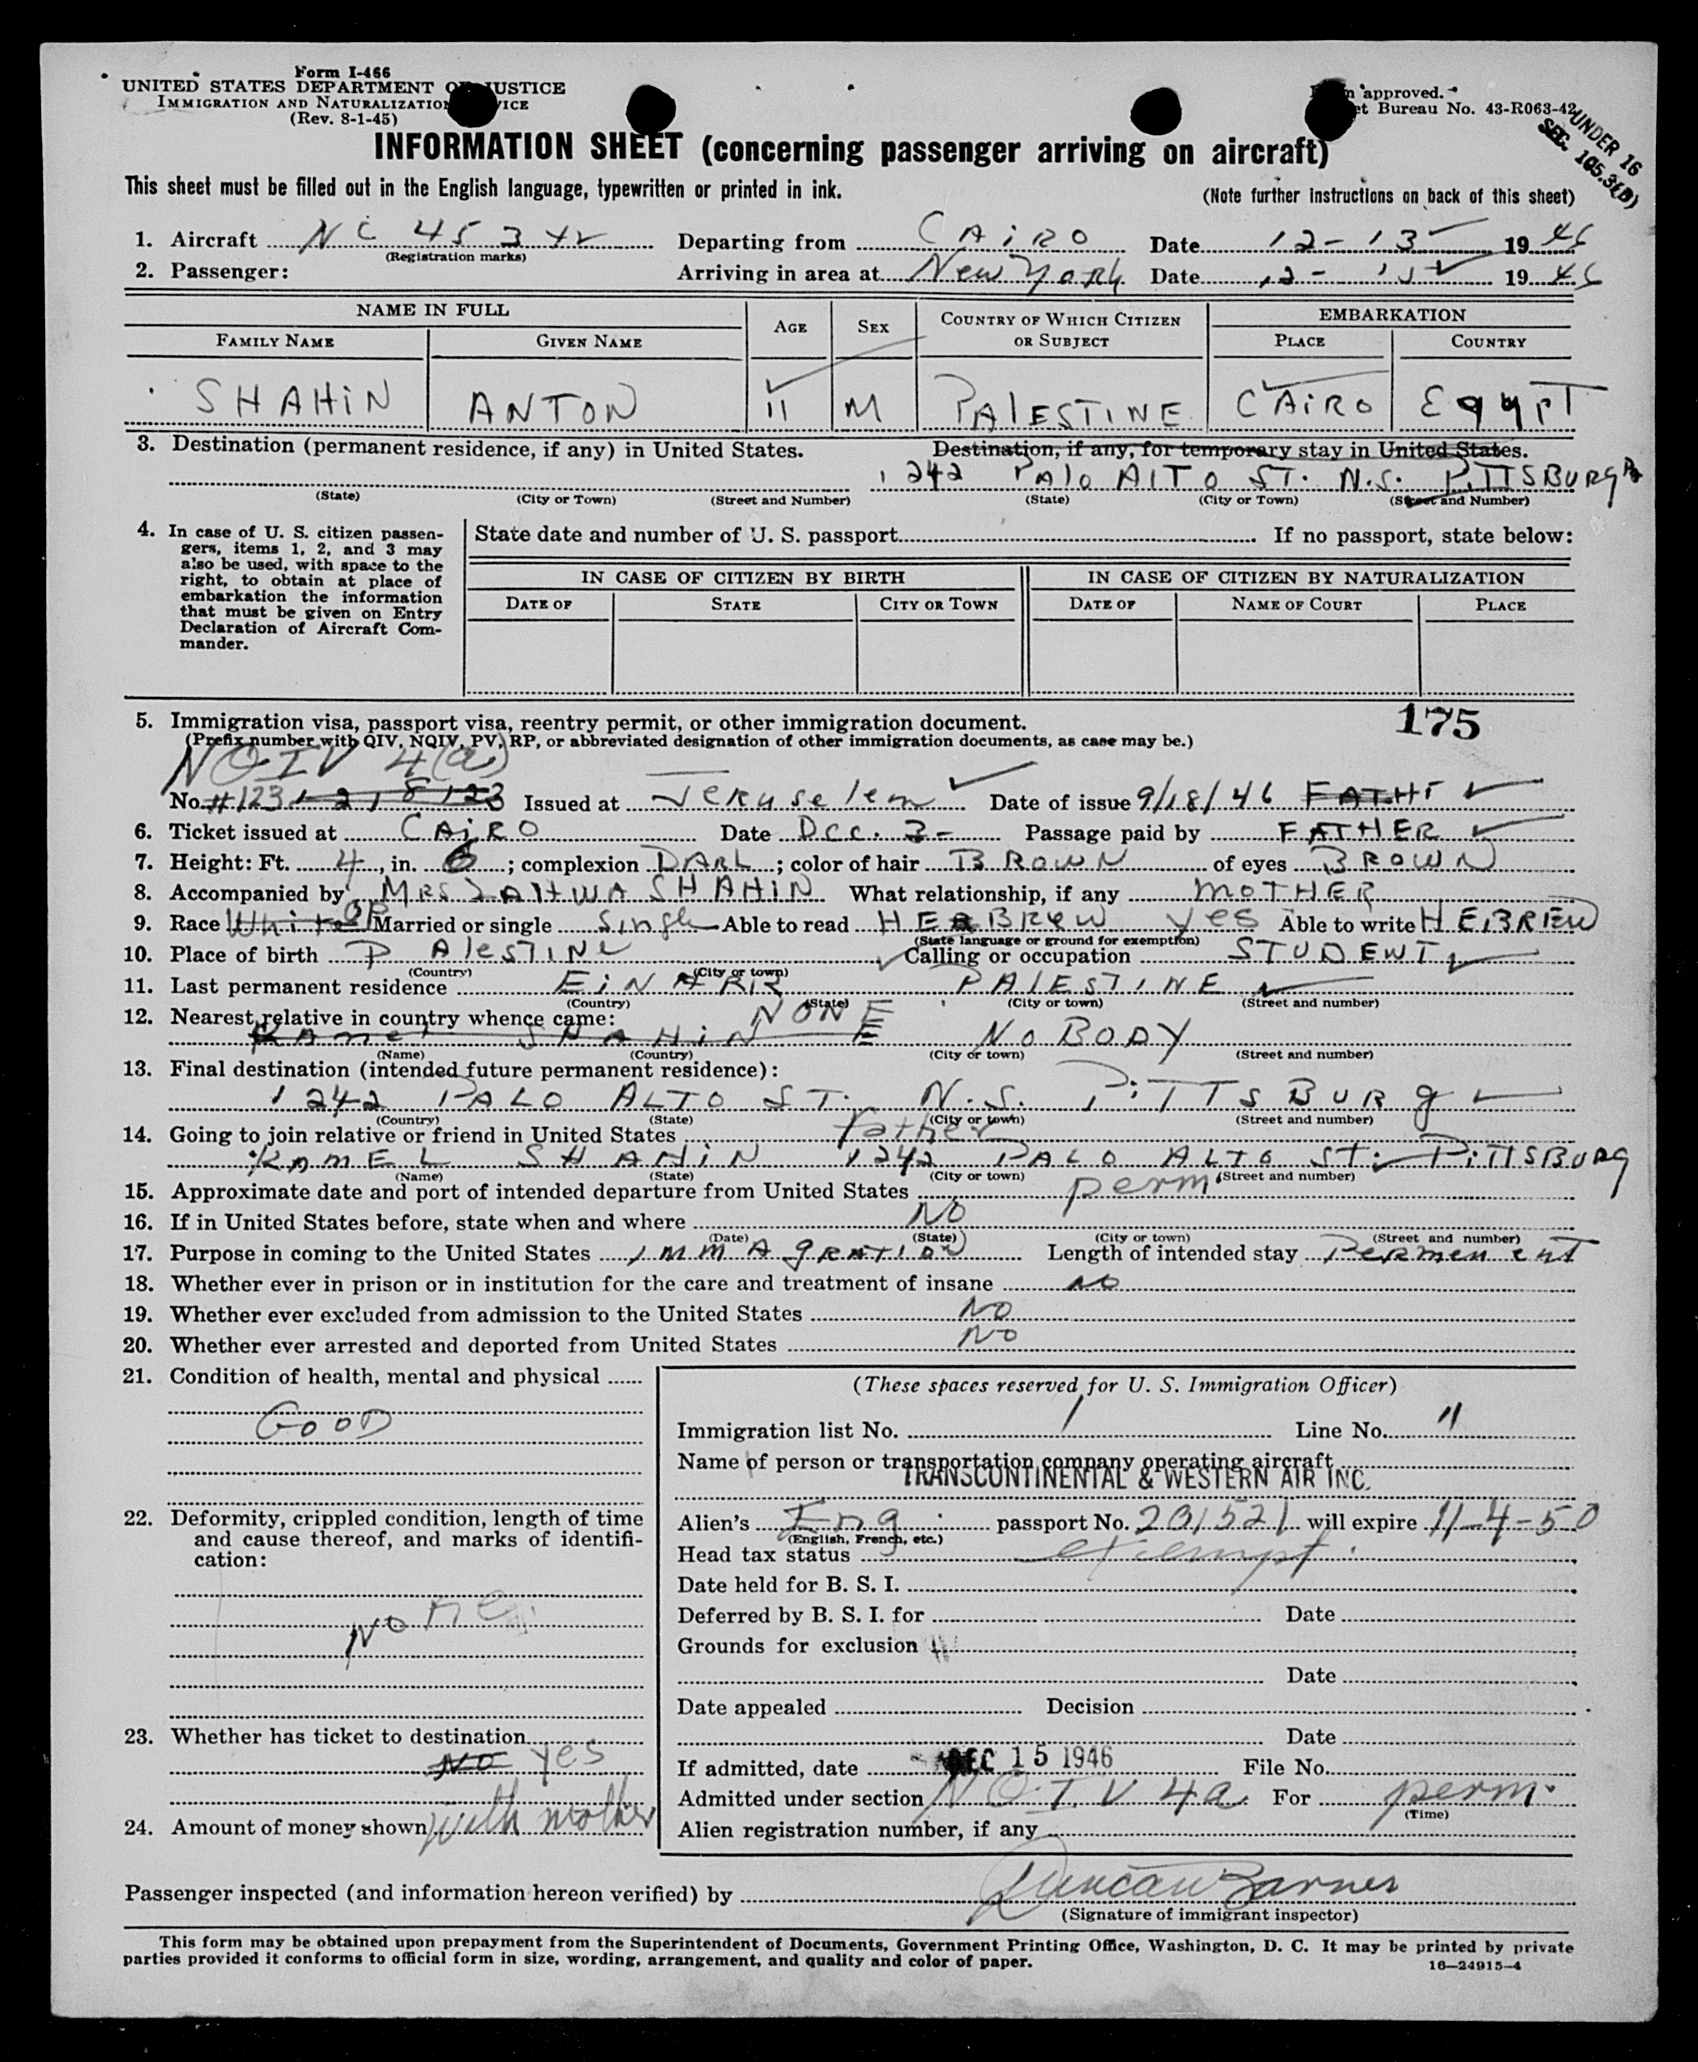 Form I-466
UNITED STATES DEPARTMENT OF JUSTICE
IMMIGRATION AND NATURALIZATION SERVICE
(Rev. 8-1-45)
approved.
Bureau No. 43-R063-42
UNDER 16
SEC. 105.3(B)
INFORMATION SHEET (concerning passenger arriving on aircraft)
This sheet must be filled out in the English language, typewritten or printed in ink. (Note further instructions on back of this sheet)
1. Aircraft NC 45342 Departing from CAIRO Date 12-13 1946
(Registration marks)
2. Passenger: Arriving in area at New York Date 12- 1946
NAME IN FULL AGE SEX COUNTRY OF WHICH CITIZEN OR SUBJECT EMBARKATION
FAMILY NAME GIVEN NAME PLACE COUNTRY
SHAHIN ANTON 11 M PALESTINE CAIRO EgypT
3. Destination (permanent residence, if any) in United States. Destination, if any, for temporary stay in United States.
1242 PAlo AlTO ST. N.S. PiTTSBURg Pa
(State) (City or Town) (Street and Number) (State) (City or Town) (Street and Number)
4. In case of U. S. citizen passengers, items 1, 2, and 3 may also be used, with space to the right, to obtain at place of embarkation the information that must be given on Entry Declaration of Aircraft Commander.
State date and number of U. S. passport If no passport, state below:
IN CASE OF CITIZEN BY BIRTH IN CASE OF CITIZEN BY NATURALIZATION
DATE OF STATE CITY OR TOWN DATE OF NAME OF COURT PLACE
175
5. Immigration visa, passport visa, reentry permit, or other immigration document.
(Prefix number with QIV, NQIV, PV, RP, or abbreviated designation of other immigration documents, as case may be.)
NQIV 4(a)
No. #123 Issued at Jerusalem Date of issue 9/18/46
6. Ticket issued at CAiRO Date Dec. 3- Passage paid by FATHER
7. Height: Ft. 4, in. 6; complexion DARk; color of hair BROWN of eyes BROWN
8. Accompanied by MRS ZAHWA SHAHIN What relationship, if any MOTHER
9. Race White Married or single Single Able to read HEBREW yes Able to write HEBREW
(State language or ground for exemption)
10. Place of birth PAlesTiNe Calling or occupation STUDENT
(Country) (City or town)
11. Last permanent residence EiN ARiR PAlESTiNE
(Country) (State) (City or town) (Street and number)
12. Nearest relative in country whence came: NONE
Kamel SHAHiN NOBODY
(Name) (Country) (City or town) (Street and number)
13. Final destination (intended future permanent residence):
1242 PALO ALTO ST. N.S. PiTTSBURg
(Country) (State) (City or town) (Street and number)
14. Going to join relative or friend in United States father
KAMEL SHAHiN 1242 PALO ALTO St. PiTTSBURg
(Name) (State) (City or town) (Street and number)
15. Approximate date and port of intended departure from United States perm.
16. If in United States before, state when and where NO
(Date) (State) (City or town) (Street and number)
17. Purpose in coming to the United States IMMAgRATION Length of intended stay PeRmenenT
18. Whether ever in prison or in institution for the care and treatment of insane NO
19. Whether ever excluded from admission to the United States NO
20. Whether ever arrested and deported from United States NO
21. Condition of health, mental and physical
GOOD
22. Deformity, crippled condition, length of time and cause thereof, and marks of identification:
none
23. Whether has ticket to destination
NO yes
24. Amount of money shown with mother
(These spaces reserved for U. S. Immigration Officer)
Immigration list No. 1 Line No. 11
Name of person or transportation company operating aircraft
TRANSCONTINENTAL & WESTERN AIR INC.
Alien's Eng passport No. 201521 will expire 11-4-50
(English, French, etc.)
Head tax status exempt.
Date held for B. S. I.
Deferred by B. S. I. for Date
Grounds for exclusion
Date
Date appealed Decision
Date
If admitted, date DEC 15 1946 File No.
Admitted under section NQIV 4a For perm.
(Time)
Alien registration number, if any
Passenger inspected (and information hereon verified) by Duncan Barnes
(Signature of immigrant inspector)
This form may be obtained upon prepayment from the Superintendent of Documents, Government Printing Office, Washington, D. C. It may be printed by private
parties provided it conforms to official form in size, wording, arrangement, and quality and color of paper. 16—24915-4